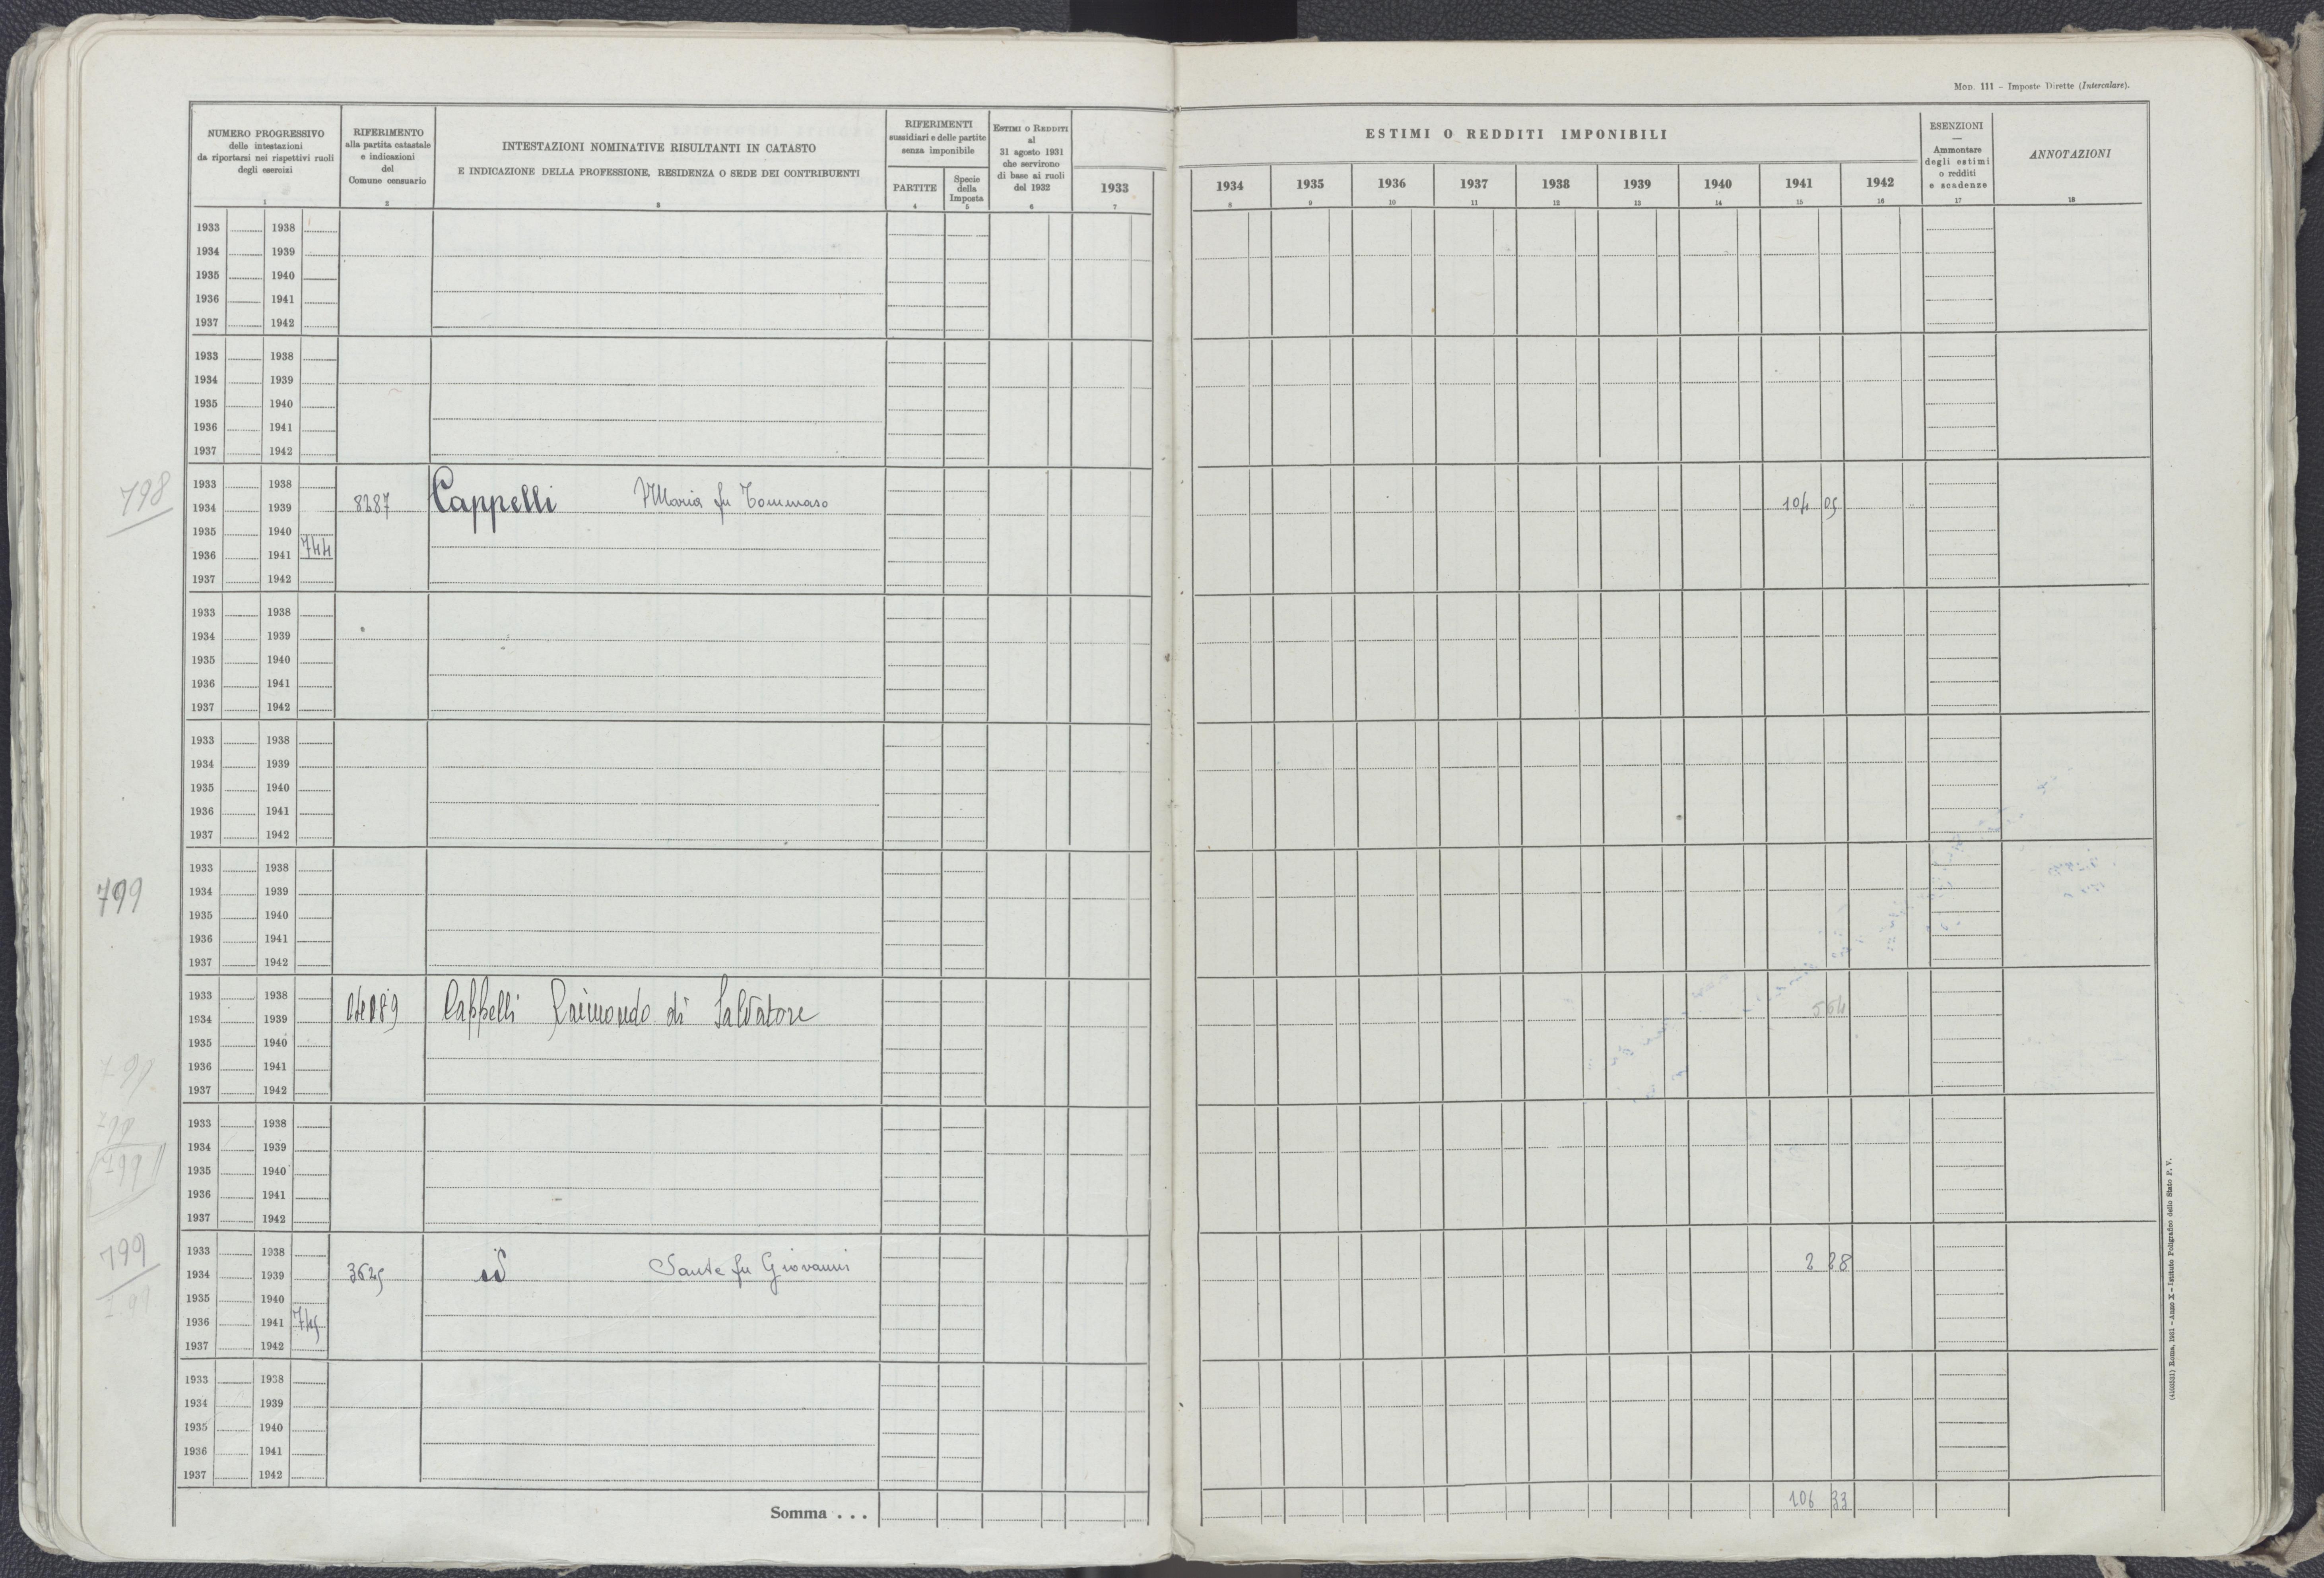 Mod. 111 – Imposte Dirette (Intercalare).
NUMERO PROGRESSIVO
delle intestazioni
da riportarsi nei rispettivi ruoli
degli esercizi
1
RIFERIMENTO
alla partita catastale
e indicazioni
del
Comune censuario
2
INTESTAZIONI NOMINATIVE RISULTANTI IN CATASTO
E INDICAZIONE DELLA PROFESSIONE, RESIDENZA O SEDE DEI CONTRIBUENTI
3
RIFERIMENTI
sussidiari e delle partite
senza imponibile
PARTITE
4
Specie
della
Imposta
5
ESTIMI O REDDITI
al
31 agosto 1931
che servirono
di base ai ruoli
del 1932
6
1933
7
ESTIMI O REDDITI IMPONIBILI
1934 1935 1936 1937 1938 1939 1940 1941 1942
8 9 10 11 12 13 14 15 16
ESENZIONI
—
Ammontare
degli estimi
o redditi
e scadenze
17
ANNOTAZIONI
18
1933 1938
1934 1939
1935 1940
1936 1941
1937 1942
1933 1938
1934 1939
1935 1940
1936 1941
1937 1942
798
1933 1938
1934 1939 8287 Cappelli Maria fu Tommaso 104 05
1935 1940
1936 1941 744
1937 1942
1933 1938
1934 1939
1935 1940
1936 1941
1937 1942
1933 1938
1934 1939
1935 1940
1936 1941
1937 1942
799
1933 1938
1934 1939
1935 1940
1936 1941
1937 1942
1933 1938
1934 1939 Cappelli Raimondo di Salvatore 564
1935 1940
1936 1941
1937 1942
1933 1938
1934 1939
1935 1940
1936 1941
1937 1942
799
1933 1938
1934 1939 3625 id Sante fu Giovanni 2 28
1935 1940
1936 1941 745
1937 1942
1933 1938
1934 1939
1935 1940
1936 1941
1937 1942
Somma . . . 106 33
(4103551) Roma, 1931 – Anno X – Istituto Poligrafico dello Stato P. V.